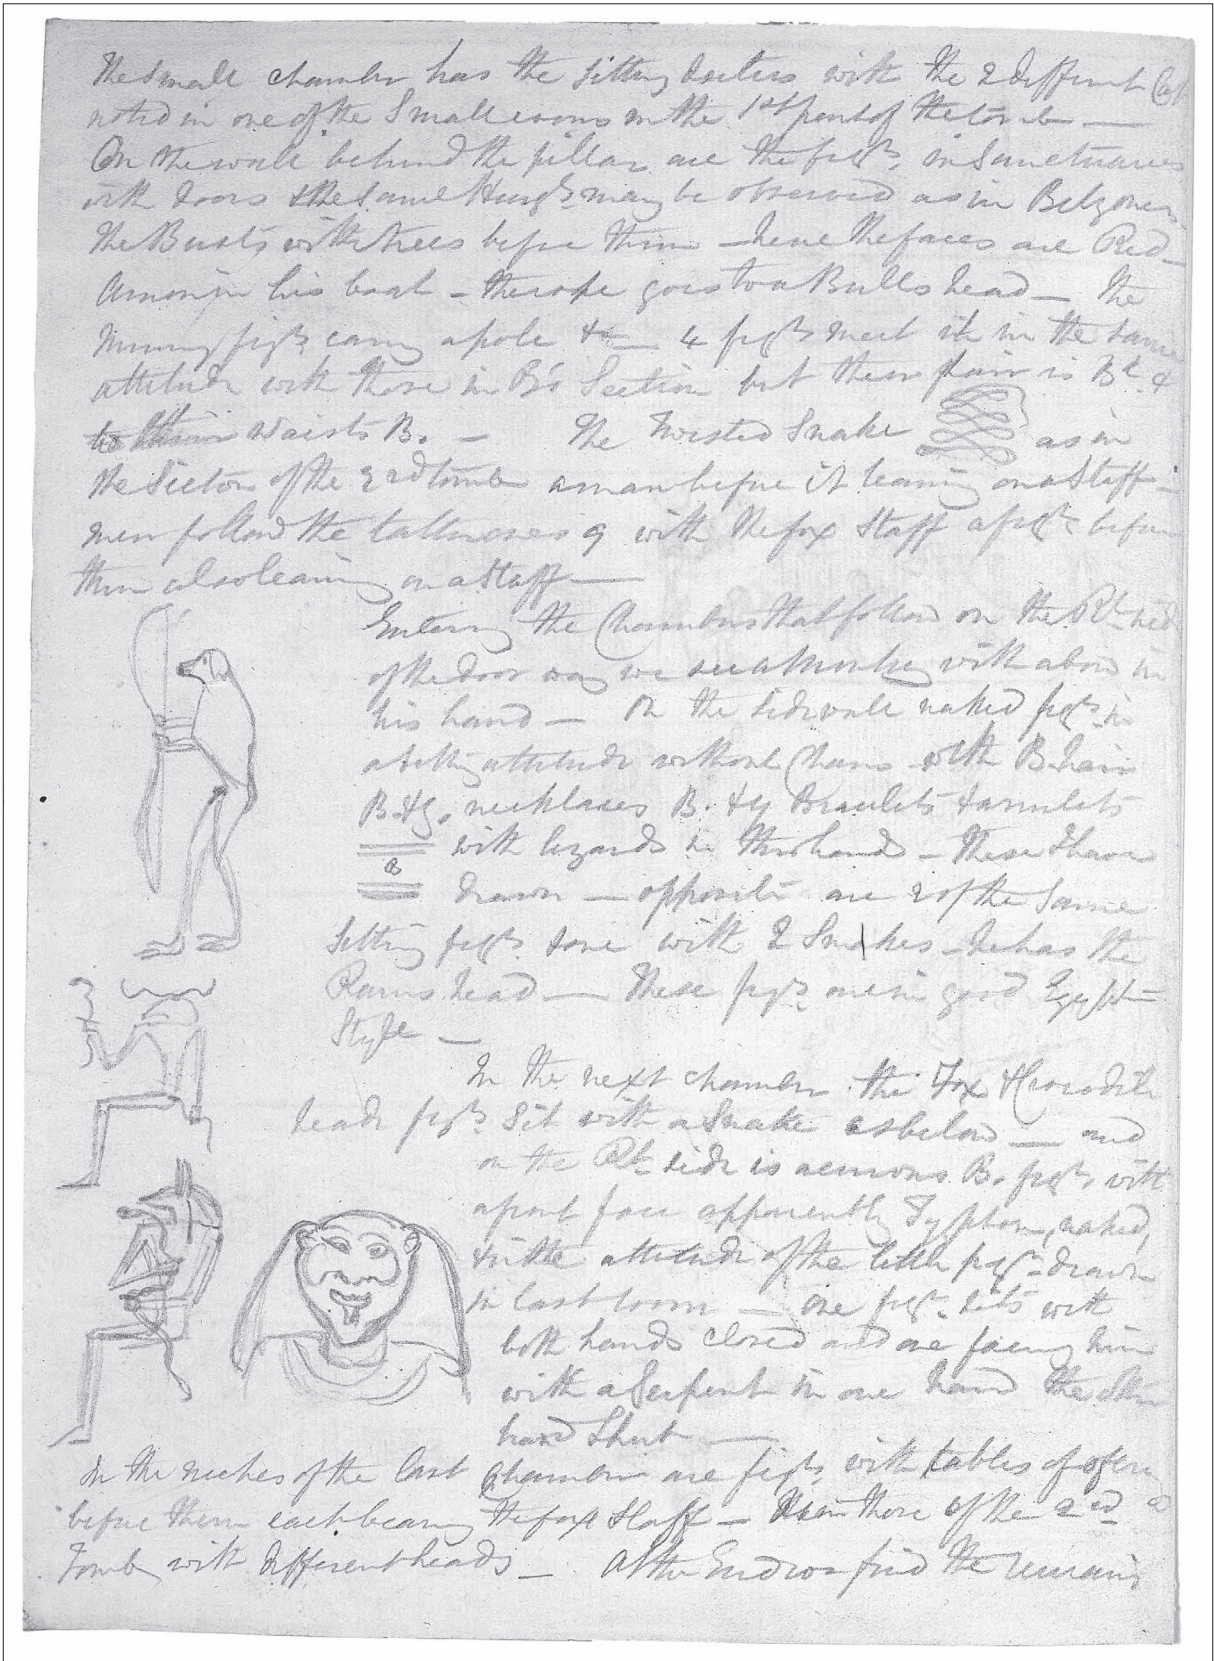 The Small chamber has the sitting deities with the 2 different
noted in one of the Small rooms in the 1st part of the tomb —
On the wall behind the pillars are the figs. in Sanctuaries
with doors & the same may be observed as in Belzonis
The Busts with trees before them — here the faces are Red —
Amon in his boat — the rope goes to a Bulls head — The
Mummy figs. carry a pole & — 4 figs. meet it in the same
attitude with those in B's Section but their hair is Bk. &
waists B. — The Twisted Snake as in
the Section of the 2nd tomb a man before it leaning on a Staff —
men follow the 9 with the fox Staff a fig. before
them also leaning on a Staff —
Entering the Chambers that follow on the Rt. side
of the door way we see a Monkey with a bow in
his hand — On the side wall naked figs. in
a sitting attitude without Chairs with B. hair
B. & y. necklaces B. & y bracelets & armlets
with lizards in their hands — These I have
a
drawn — opposite are 2 of the same
sitting figs. & one with 2 Snakes — he has the
Rams head — These figs. are in good Egyptn
Style —
In the next chamber the Fox & Crocodile
heads figs. Sit with a Snake as below — and
on the Rt. side is B. figs. with
a front face apparently Typhon, naked,
in the attitude of the little fig. drawn
in last room — one fig. sits with
both hands closed and one facing him
with a Serpent in one hand the other
hand Shut —
In the niches of the last Chamber are figs. with tables of
before them each bearing the fox staff — those of the 2nd
Tomb with different heads — At the End we find the remains